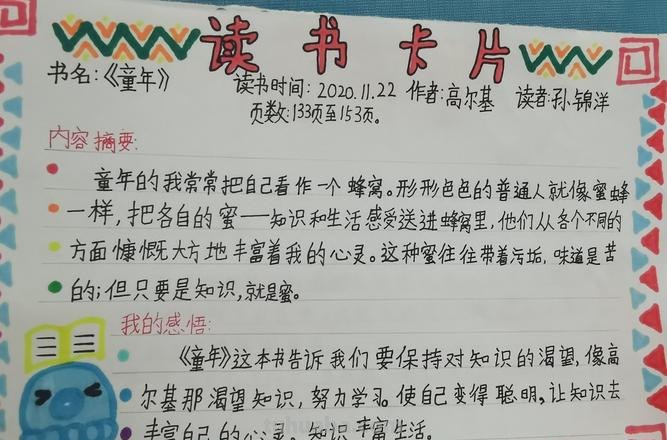 读书卡片
书名:《童年》
读书时间: 2020.11.22 作者:高尔基 读者:孙锦洋
页数:133页至153页。
内容摘要:
童年的我常常把自己看作一个蜂窝。形形色色的普通人就像蜜蜂
一样,把各自的蜜——知识和生活感受送进蜂窝里,他们从各个不同的
方面慷慨大方地丰富着我的心灵。这种蜜往往带着污垢,味道是苦
的;但只要是知识,就是蜜。
我的感悟:
《童年》这本书告诉我们要保持对知识的渴望,像高
尔基那渴望知识,努力学习。使自己变得聪明,让知识去
丰富自己的心灵。知识丰富生活。